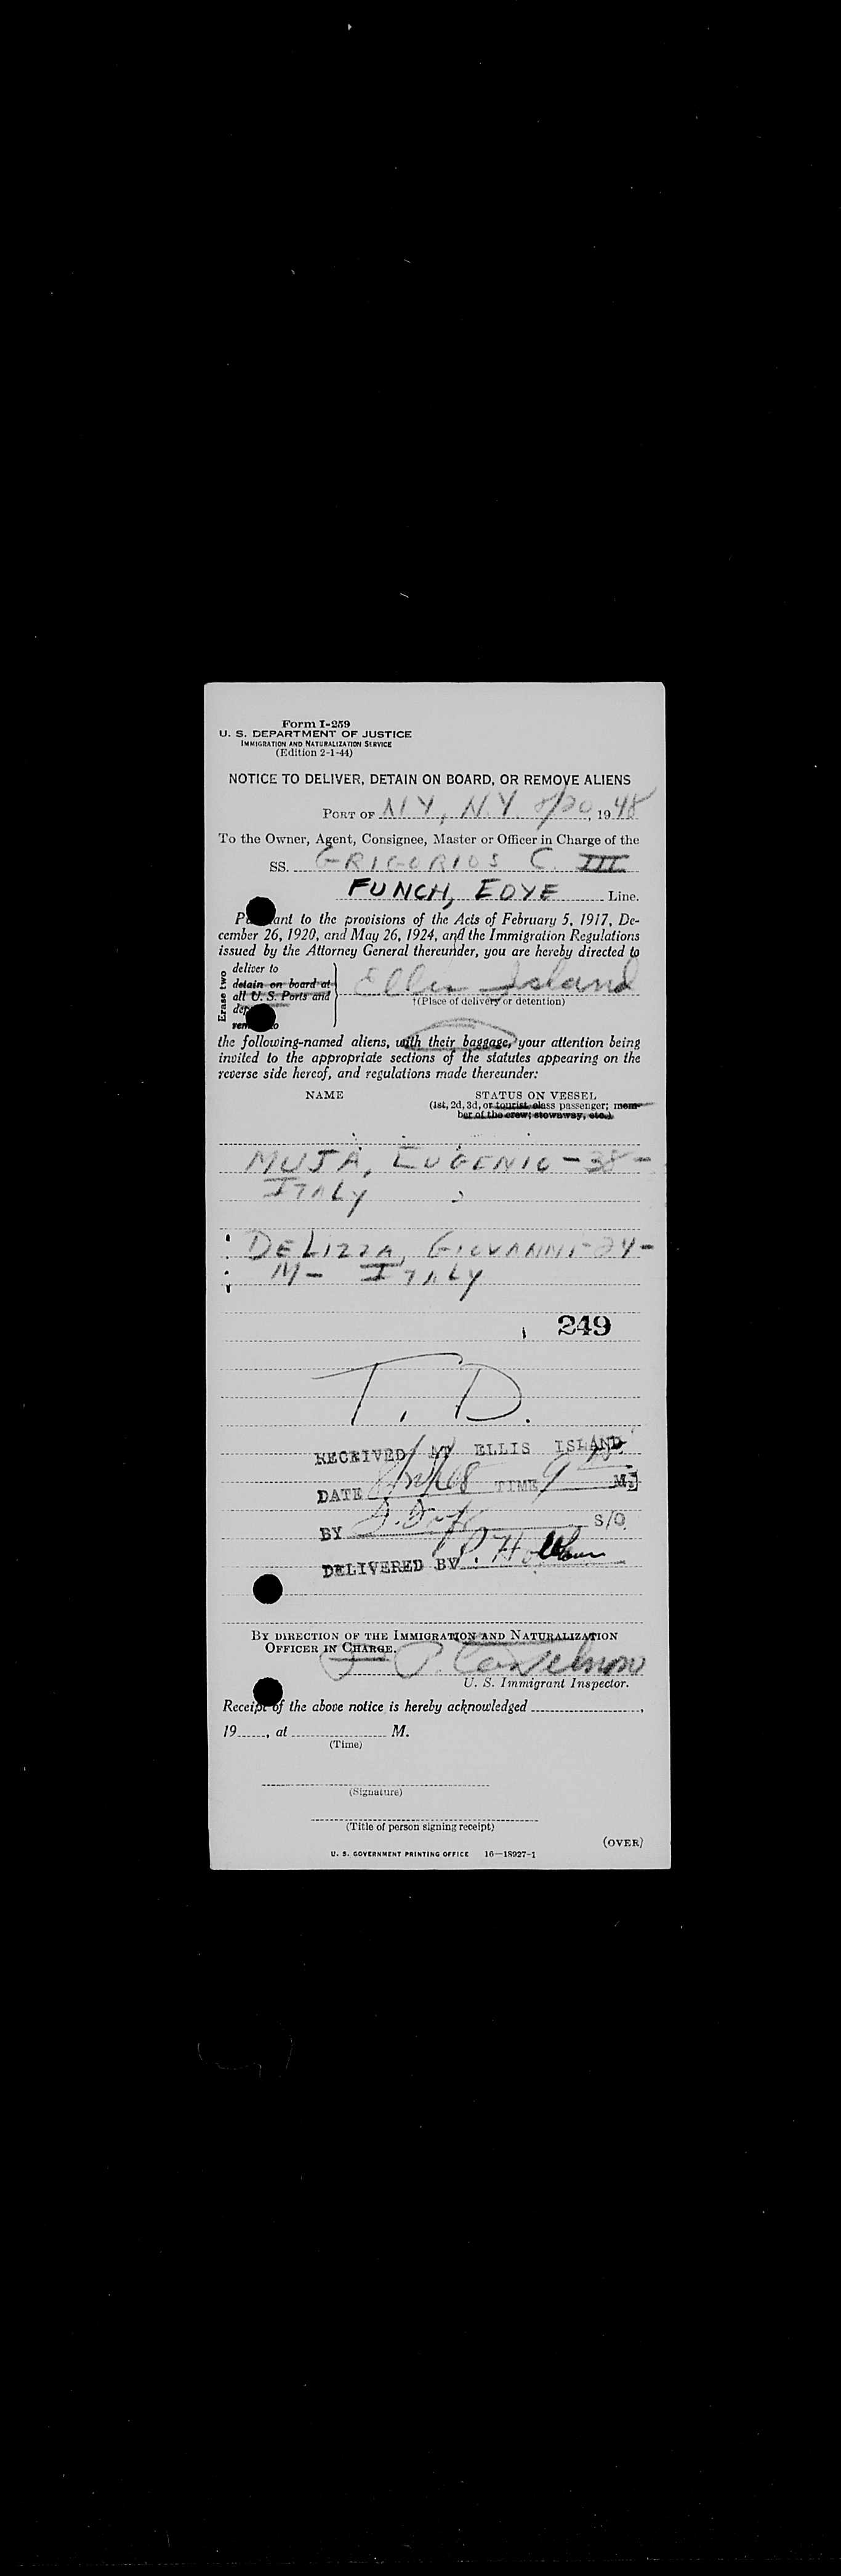 Form I-259
U. S. DEPARTMENT OF JUSTICE
IMMIGRATION AND NATURALIZATION SERVICE
(Edition 2-1-44)
NOTICE TO DELIVER, DETAIN ON BOARD, OR REMOVE ALIENS
PORT OF N.Y., N.Y. 8/20, 1948
To the Owner, Agent, Consignee, Master or Officer in Charge of the
SS. GRIGORIOS C. III
FUNCH, EDYE Line.
Pursuant to the provisions of the Acts of February 5, 1917, De-
cember 26, 1920, and May 26, 1924, and the Immigration Regulations
issued by the Attorney General thereunder, you are hereby directed to
Erase two
deliver to
detain on board at
all U. S. Ports and
Ellis Island
†(Place of delivery or detention)
the following-named aliens, with their baggage, your attention being
invited to the appropriate sections of the statutes appearing on the
reverse side hereof, and regulations made thereunder:
NAME STATUS ON VESSEL
(1st, 2d, 3d, or tourist class passenger; mem-
ber of the crew; stowaway, etc.)
MUJA, EUGENIO - 38 -
ITALY
DELIZZA, GIOVANNI - 24 -
M - ITALY
249
T. D.
RECEIVED AT ELLIS ISLAND
DATE TIME 9 M.
BY S/O
DELIVERED BY
BY DIRECTION OF THE IMMIGRATION AND NATURALIZATION
OFFICER IN CHARGE.
U. S. Immigrant Inspector.
Receipt of the above notice is hereby acknowledged ,
19 , at M.
(Time)
(Signature)
(Title of person signing receipt)
(OVER)
U. S. GOVERNMENT PRINTING OFFICE 16—18927-1